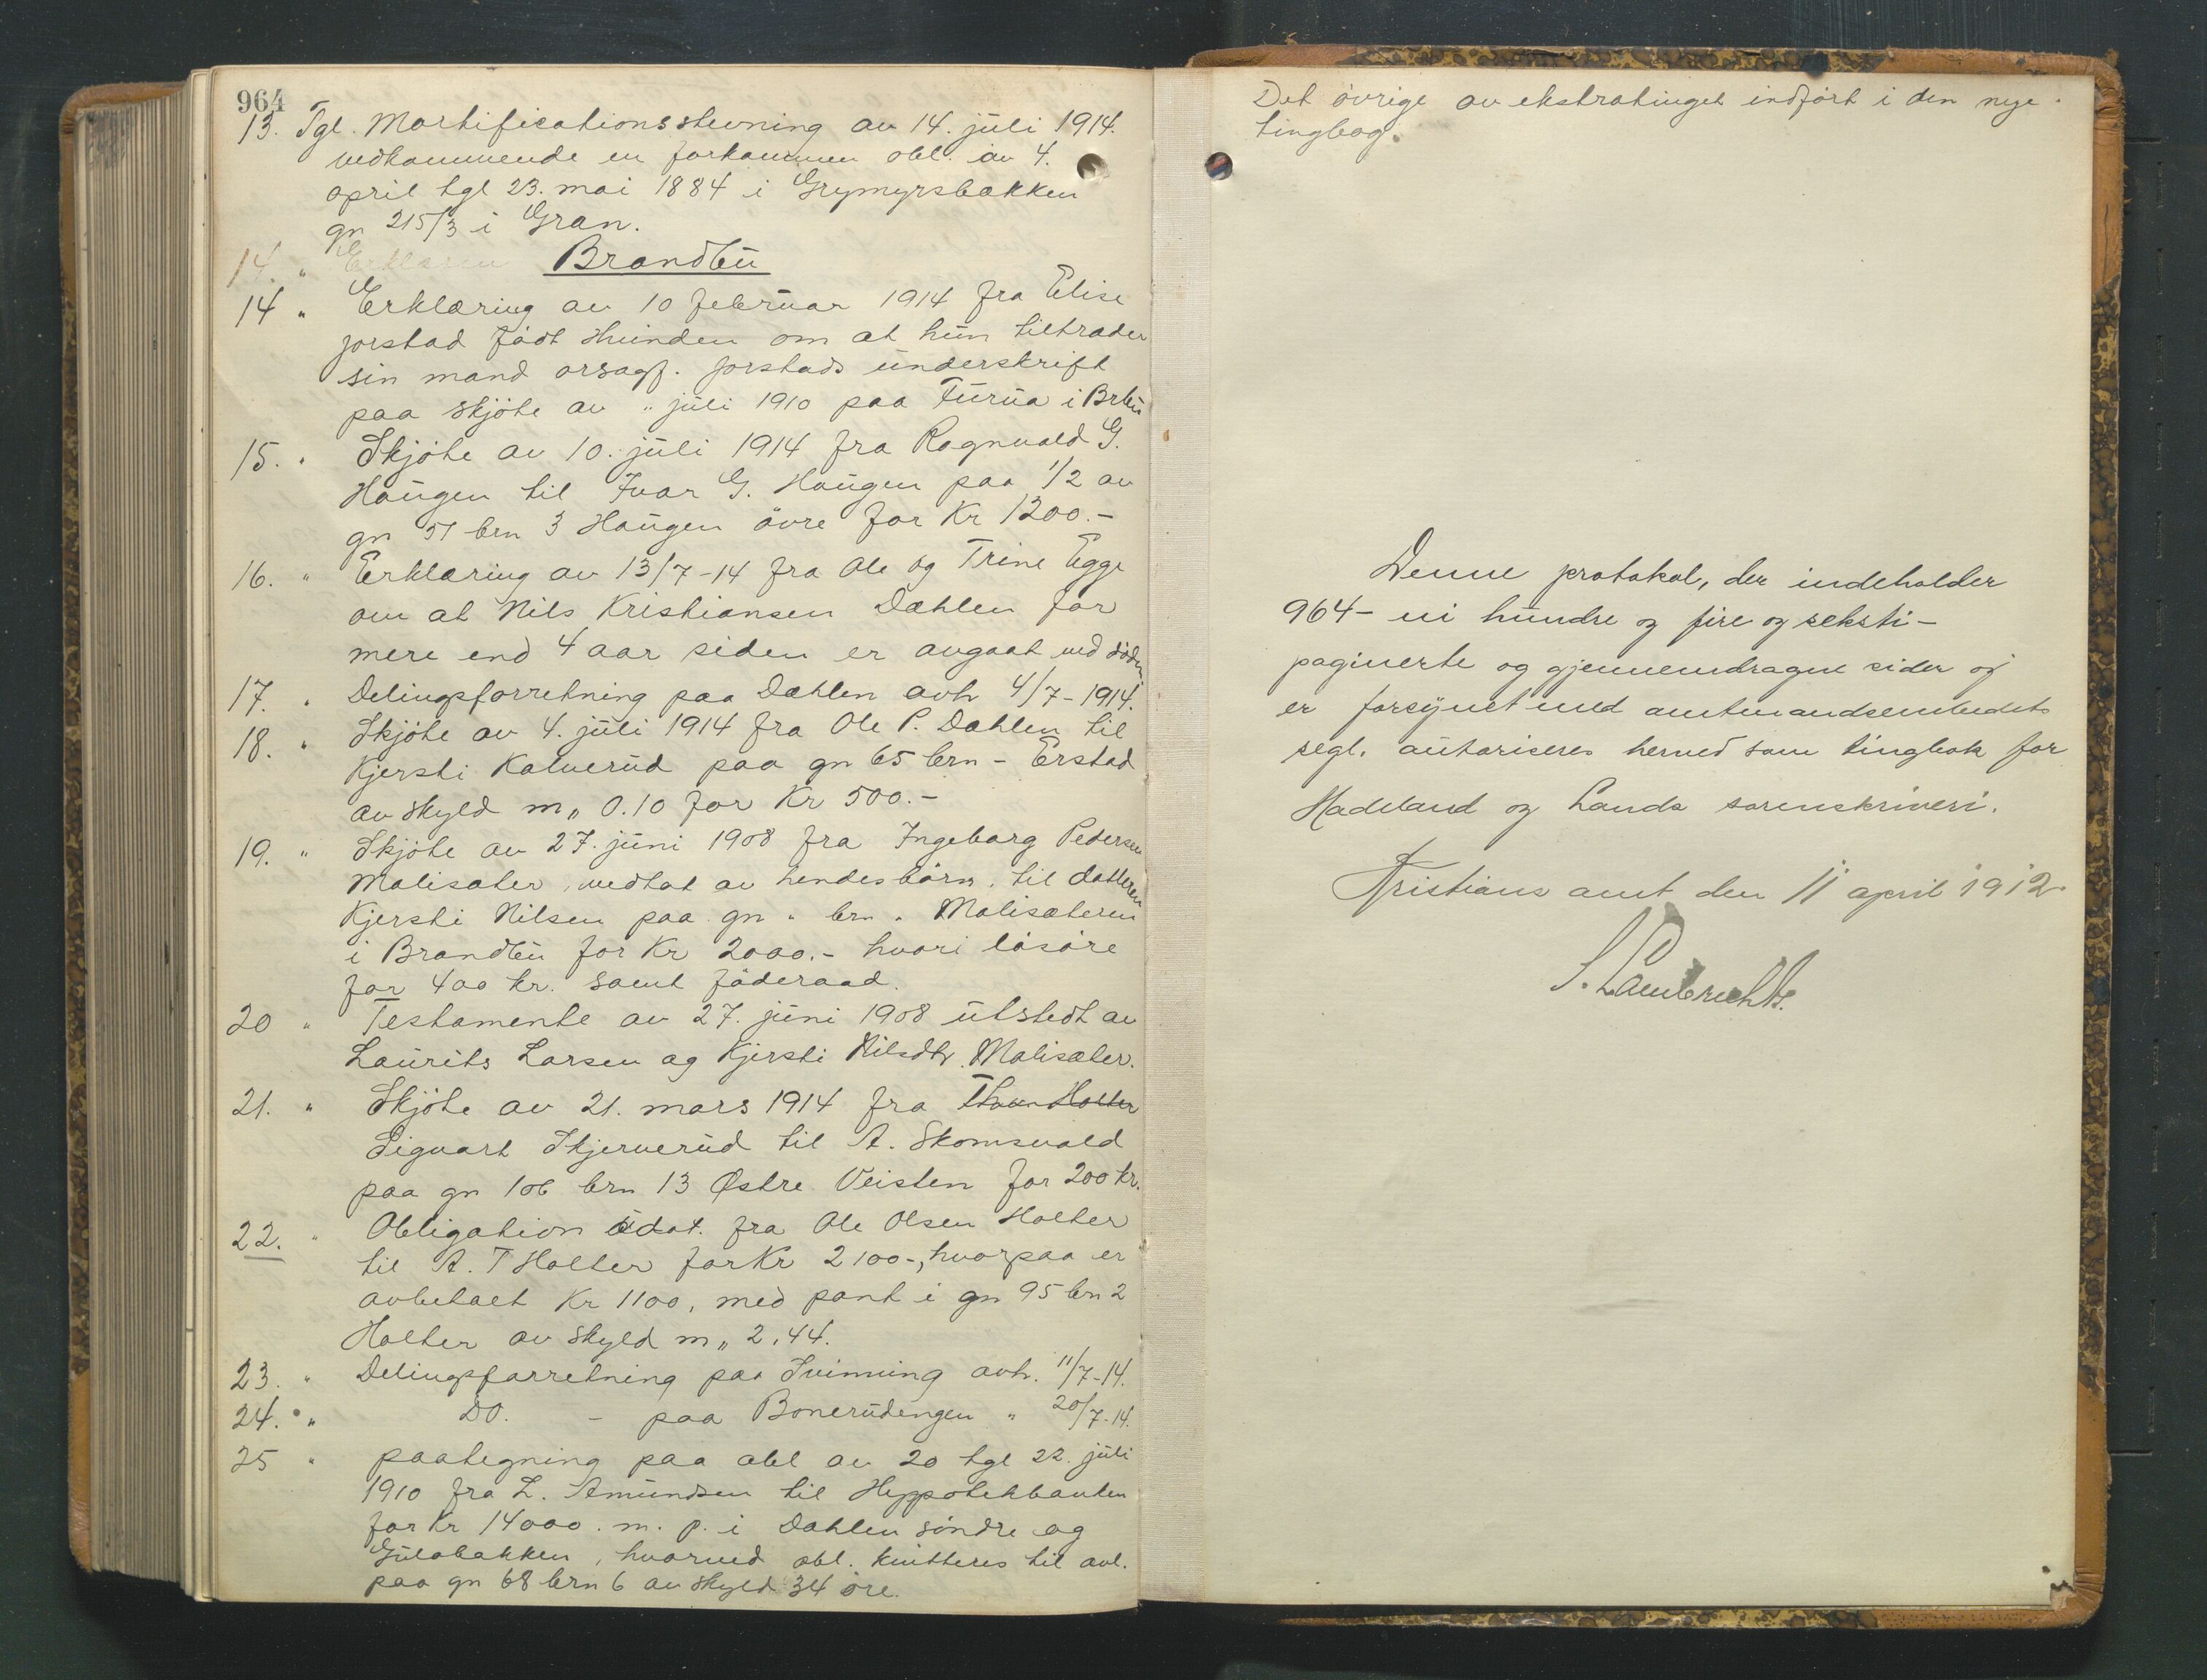 964
13. Tgl. Mortificationsstevning av 14. juli 1914.
vedkommende en forkommen obl. av 4.
april tgl 23. mai 1884 i Grymyrsbakken
gn 215/3 i Gran.
14. " Erklæren Brandbu
14 " Erklæring av 10 februar 1914 fra Elise
Jorstad född Hvinden om at hun tiltræder
sin mand orsagf. Jorstads underskrift
paa skjöte av " juli 1910 paa Furua i Brbu
15. " Skjöte av 10. juli 1914 fra Ragnvald G.
Haugen til Ivar G. Haugen paa 1/2 av
gn 51 brn 3 Haugen övre for Kr 1200.-
16. " Erklæring av 13/7-14 fra Ole og Trine Egge
om at Nils Kristiansen Dæhlen for
mere end 4 aar siden er avgaat ved döden
17. " Delingsforretning paa Dæhlen avh 4/7-1914.
18. " Skjöte av 4. juli 1914 fra Ole P. Dahlen til
Kjersti Kalverud paa gn 65 brn - Erstad
av skyld m„ 0.10 for Kr 500.-
19. " Skjöte av 27. juni 1908 fra Ingeborg Pedersen
Malisæter, vedtat av hendes börn, til datteren
Kjersti Nilsen paa gn " brn " Malisæteren
i Brandbu for Kr 2000.- hvori lösöre
for 400 kr. samt föderaad.
20 " Testamente av 27. juni 1908 utstedt av
Laurits Larsen og Kjersti Nilsdtr. Malisæter.
21. " Skjöte av 21. mars 1914 fra Thorn Holter
Sigvart Skjerverud til A. Skomsvold
paa gn 106 brn 13 Østre Veisten for 200 kr.
22. " Obligation udat. fra Ole Olsen Holter
til A. T Holter for Kr 2100-, hvorpaa er
avbetalt Kr 1100, med pant i gn 95 brn 2
Holter av skyld m„ 2,44.
23. " Delingsforretning paa Svinning avh. 11/7-14.
24. " Do. - paa Bonerudengen " 20/7-14.
25 " paategning paa obl av 20 tgl 22. juli
1910 fra L. Amundsen til Hyppotekbanken
for Kr 14000. m. p. i Dahlen söndre og
Gulabakken, hvorved obl. kvitteres til avl.
paa gn 68 brn 6 av skyld 34 öre.
Det övrige av ekstratinget indfört i den nye
tingbog.
Denne protokol, der indeholder
964 - ni hundre og fire og seksti -
paginerte og gjennemdragne sider og
er forsynet med amtmandsembedets
segl. autoriseres herved som tingbok for
Hadeland og Lands sorenskriveri.
Kristians amt den 11 april 1912.
S. Lambrechts.